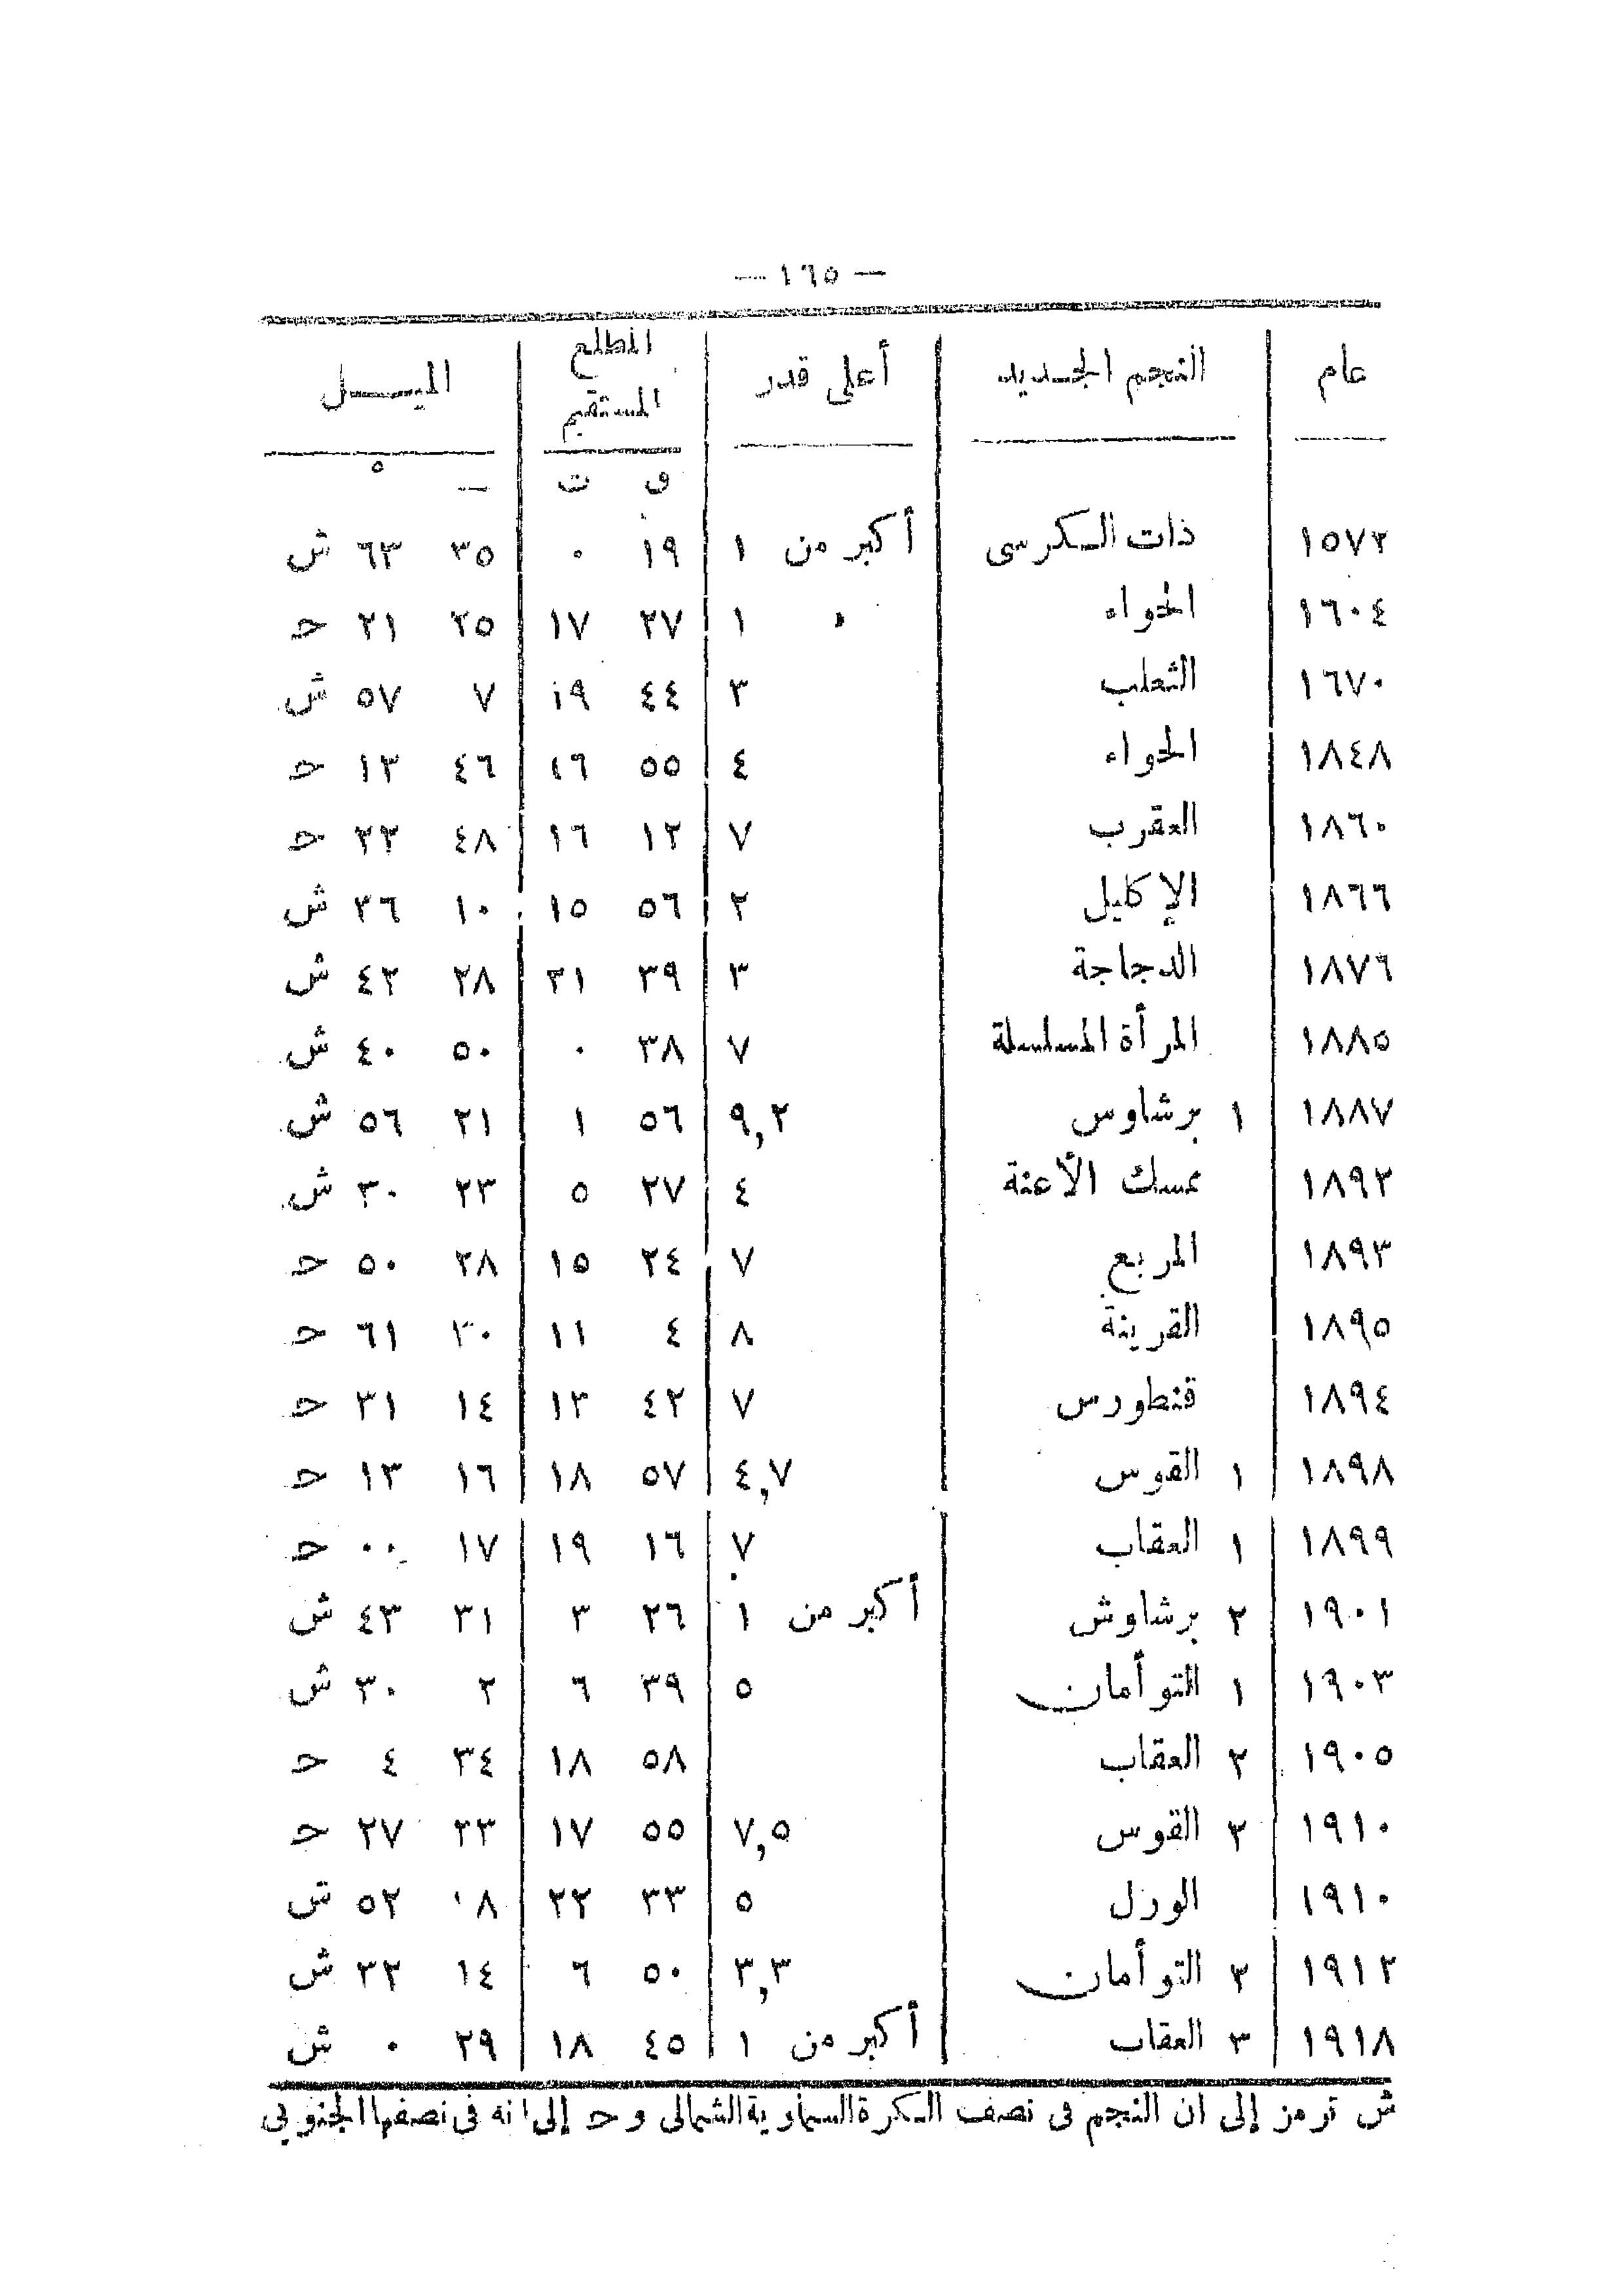 — ١٦٥ —
عام النجم الجديد أعلى قدر المطلع المستقيم الميل
ق ت — °
١٥٧٣ ذات الكرسى أكبر من ١ ١٩ ٠ ٣٥ ٦٣ ش
١٦٠٤ الحواء » ١ ٢٧ ١٧ ٢٥ ٢١ ح
١٦٧٠ الثعلب ٣ ٤٤ ١٩ ٧ ٥٧ ش
١٨٤٨ الحواء ٤ ٥٥ ١٦ ٤٦ ١٣ ح
١٨٦٠ العقرب ٧ ١٢ ١٦ ٤٨ ٢٢ ح
١٨٦٦ الإكليل ٢ ٥٦ ١٥ ١٠ ٢٦ ش
١٨٧٦ الدجاجة ٣ ٣٩ ٢١ ٢٨ ٤٢ ش
١٨٨٥ المرأة المسلسلة ٧ ٣٨ ٠ ٥٠ ٤٠ ش
١٨٨٧ ١ برشاوس ٩,٢ ٥٦ ١ ٢١ ٥٦ ش
١٨٩٢ ممسك الأعنة ٤ ٢٧ ٥ ٢٣ ٣٠ ش
١٨٩٣ المربع ٧ ٢٤ ١٥ ٢٨ ٥٠ ح
١٨٩٥ القرينة ٨ ٤ ١١ ٣٠ ٦١ ح
١٨٩٤ قنطورس ٧ ٤٢ ١٣ ١٤ ٣١ ح
١٨٩٨ ١ القوس ٤,٧ ٥٧ ١٨ ١٦ ١٣ ح
١٨٩٩ ١ العقاب ٧ ١٦ ١٩ ١٧ ٠٠ ح
١٩٠١ ٢ برشاوش أكبر من ١ ٢٦ ٣ ٣١ ٤٣ ش
١٩٠٣ ١ التوأمان ٥ ٣٩ ٦ ٢ ٣٠ ش
١٩٠٥ ٢ العقاب ٥٨ ١٨ ٣٤ ٤ ح
١٩١٠ ٢ القوس ٧,٥ ٥٥ ١٧ ٢٣ ٢٧ ح
١٩١٠ الورل ٥ ٣٣ ٢٢ ١٨ ٥٢ ش
١٩١٢ ٢ التوأمان ٣,٣ ٥٠ ٦ ١٤ ٣٢ ش
١٩١٨ ٣ العقاب أكبر من ١ ٤٥ ١٨ ٢٩ ٠ ش
ش ترمز إلى ان النجم فى نصف الكرة السماوية الشمالى و ح إلى انه فى نصفها الجنوبى